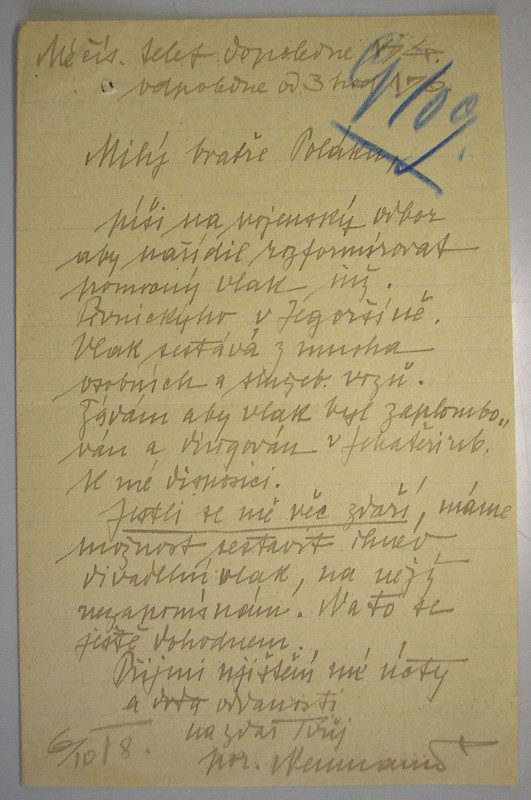 Mé čís. telef dopoledne
odpoledne od 3 hod 176
9/109.
Milý bratře Poláku,
píši na vojenský odbor
aby nařídil rozformírovat
pomocný vlak inž.
v Jegoršině.
Vlak sestává z mnoha
osobních a služeb. vozů.
Žádám aby vlak byl zaplombo„
ván a dirigován v Jekatěrinb.
k mé disposici.
Jestli se mě věc zdaří, máme
možnost sestavit ihned
divadelní vlak, na nějž
nezapomínám. Na to se
ještě dohodnem.
Přijmi ujištění mé úcty
a oddanosti
nazdar Tvůj
por. Neumann
6/10 18.